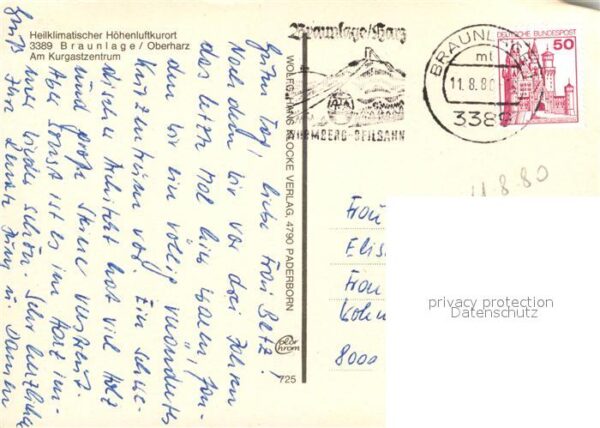 Heilklimatischer Höhenluftkurort
3389 Braunlage/Oberharz
Am Kurgastzentrum
Guten Tag, liebe Frau Betz!
Nachdem wir vor drei Jahren
das letzte Mal hier waren, fan-
den wir ein völlig verändertes
Kurzentrum vor. Ein schwe-
discher Architekt hat viel Holz
und große Steine
Aber sonst ist es im Harz im-
mer wieder schön. Sehr herzliche
Grüße Ihre
WOLFG. HANS KLOCKE VERLAG, 4790 PADERBORN
color
chrom
725
Braunlage/Harz
WURMBERG-SEILBAHN
BRAUNLAGE
mt
11.8.80
3389
DEUTSCHE BUNDESPOST
50
11.8.80
Frau
Elis
Frau
8000
privacy protection
Datenschutz